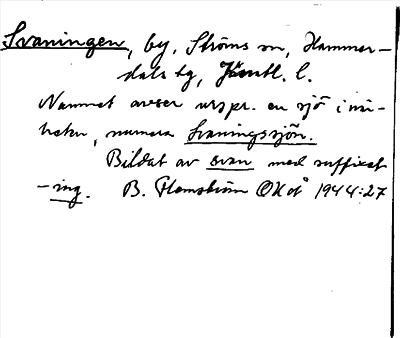 Svaningen, by, Ströms sn, Hammer-
dals tg, Jämtl. l.
Namnet avser urspr. en sjö i trak-
ten, numera Svaningssjön.
Bildat av svan med suffixet
-ing. B. Flemström OUoÅ 1944:27